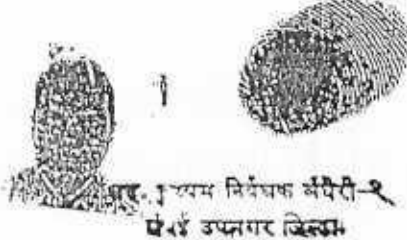 सह. दुय्यम निबंधक अंधेरी-२
मुंबई उपनगर जिल्हा.